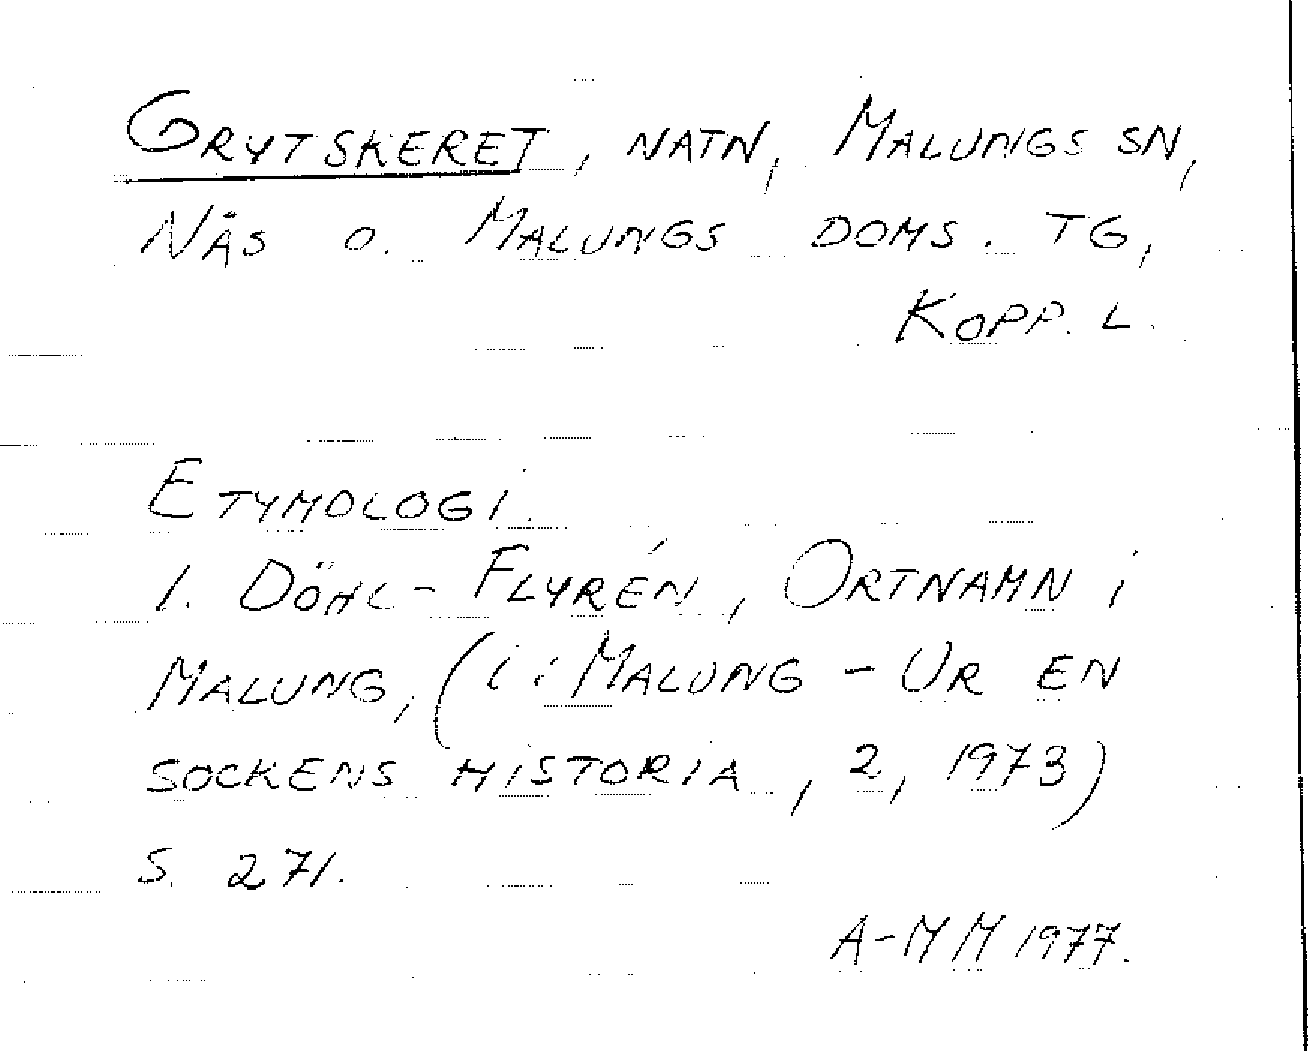 GRYTSKERET, NATN, MALUNGS SN,
NÅS O. MALUNGS DOMS. TG,
KOPP. L.
ETYMOLOGI.
1. DÖHL-FLYRÉN, ORTNAMN i
MALUNG, (i: MALUNG - UR EN
SOCKENS HISTORIA, 2, 1973)
S. 271.
A-MM 1977.